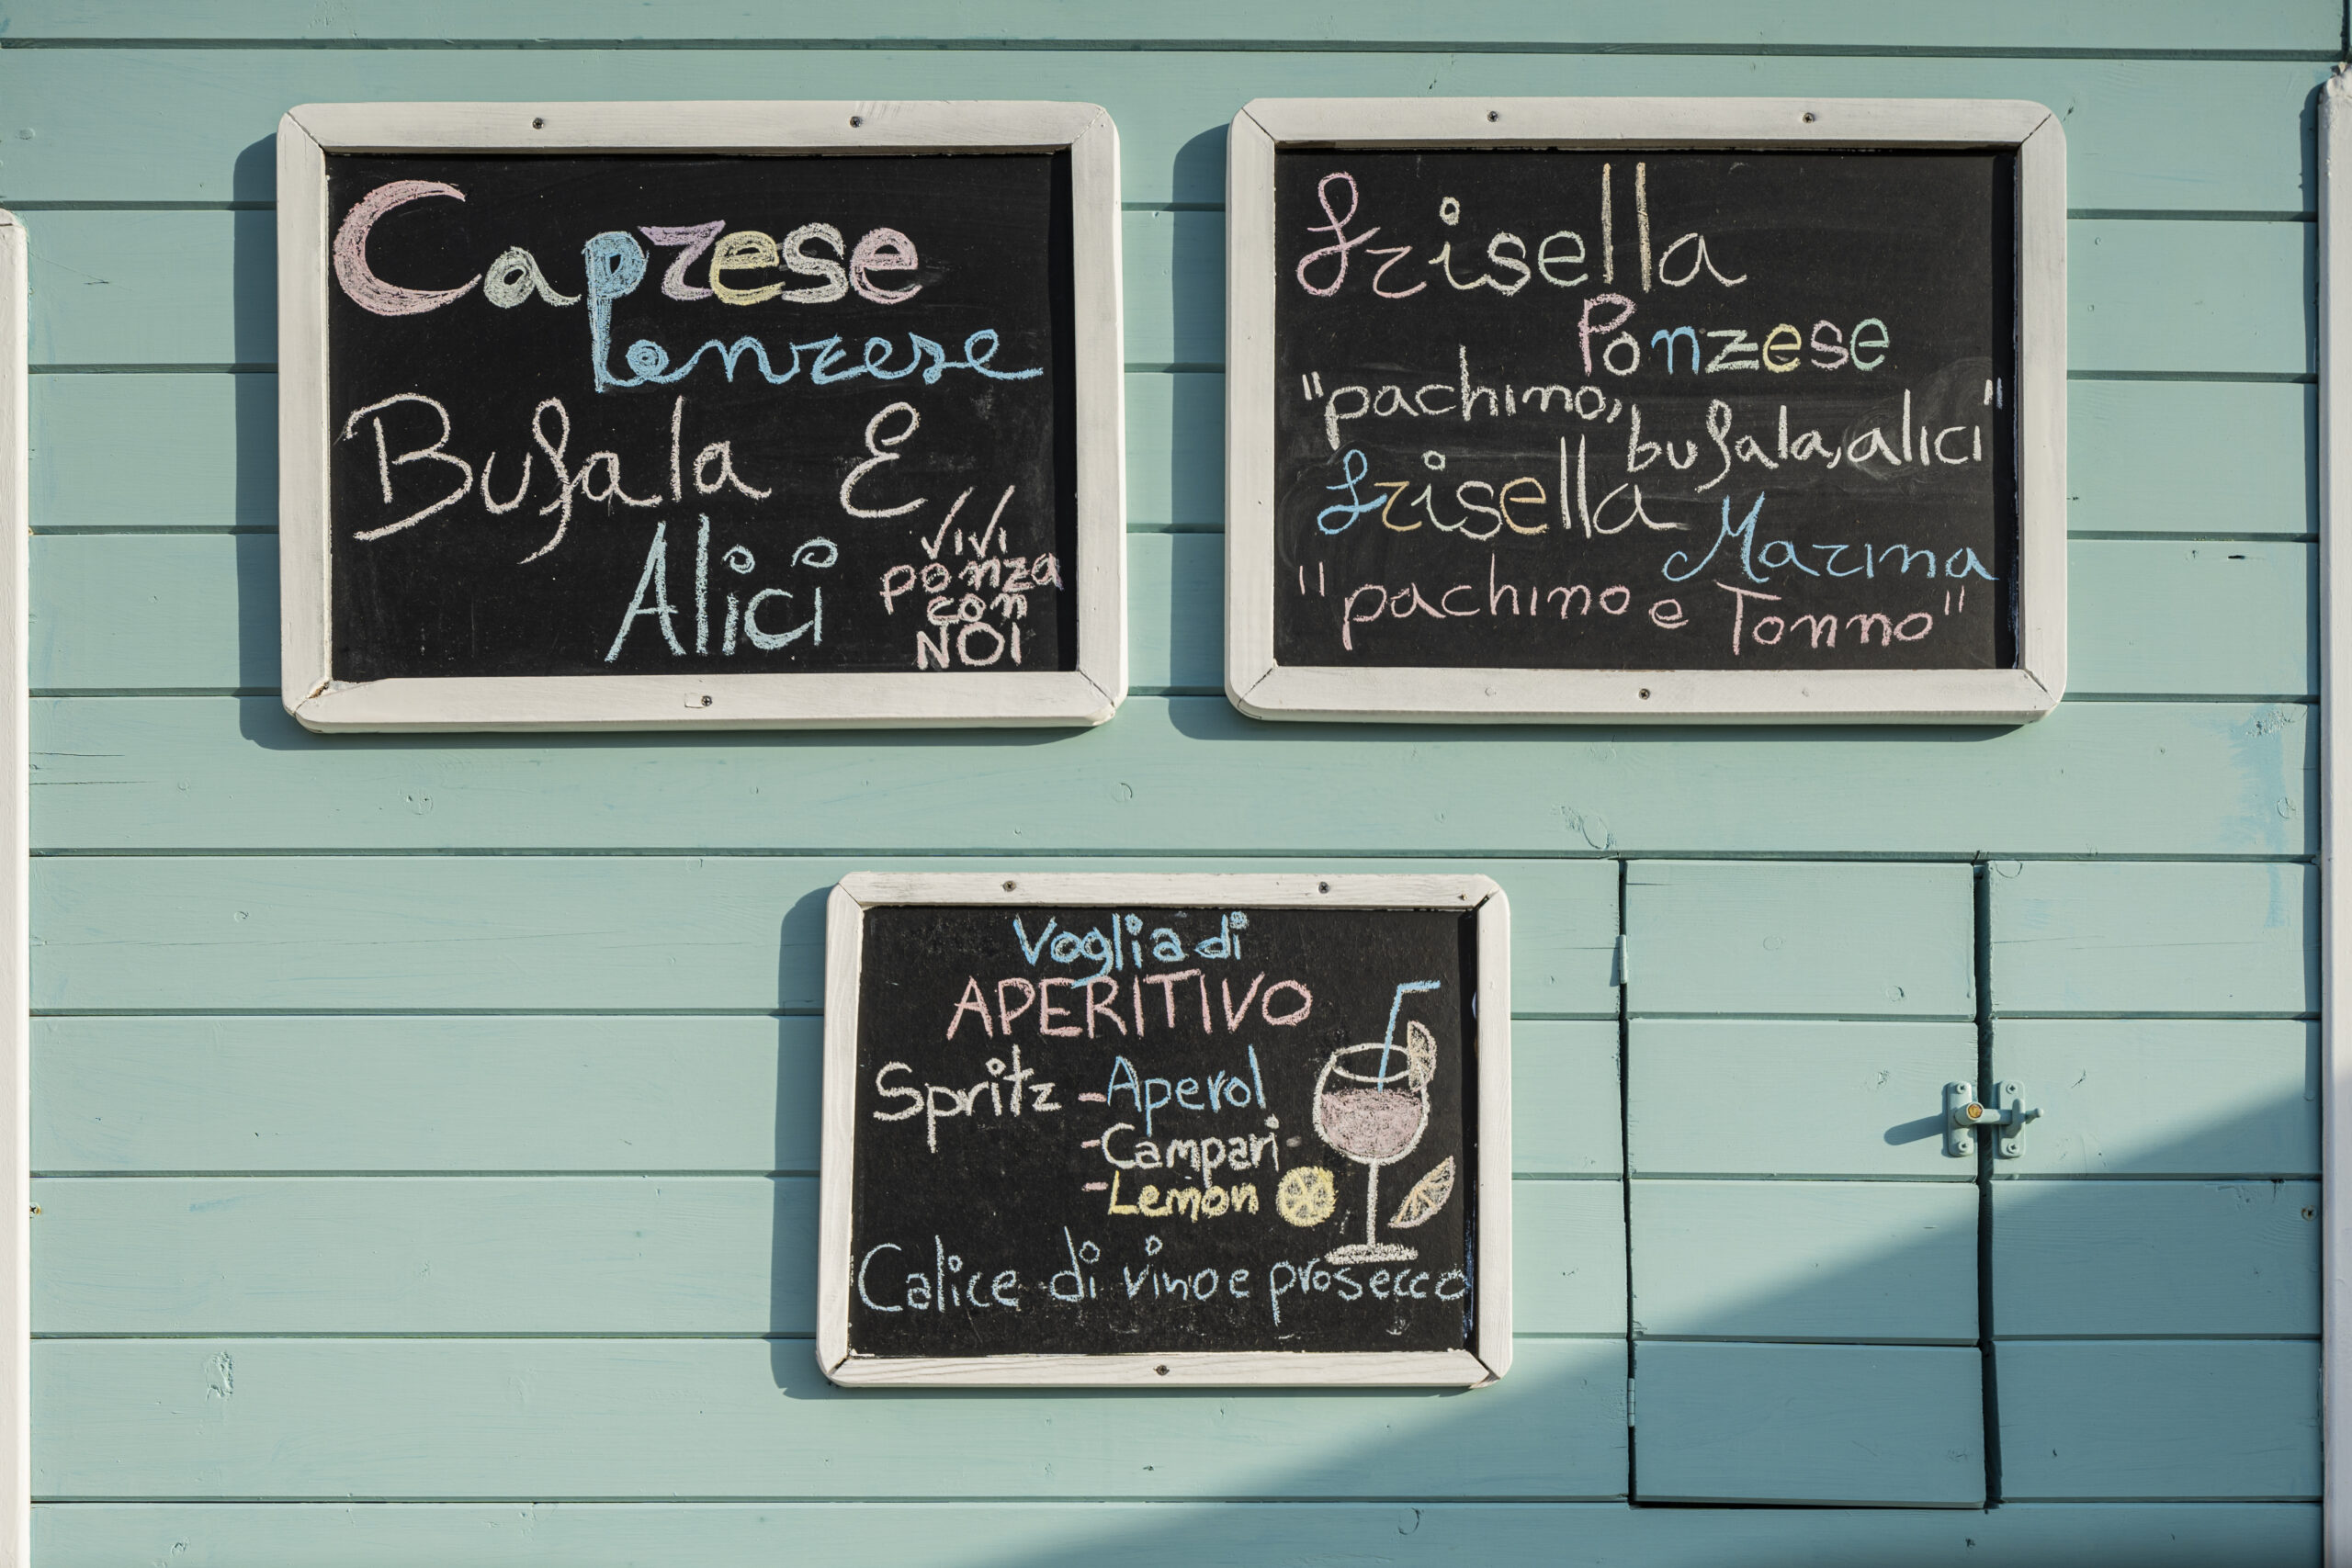 Caprese
Ponzese
Bufala E
Alici
VIVI
ponza
con
NOI
frisella
Ponzese
"pachino,
bufala, alici"
frisella
Marina
"pachino e Tonno"
Voglia di
APERITIVO
Spritz - Aperol
- Campari
- Lemon
Calice di vino e prosecco